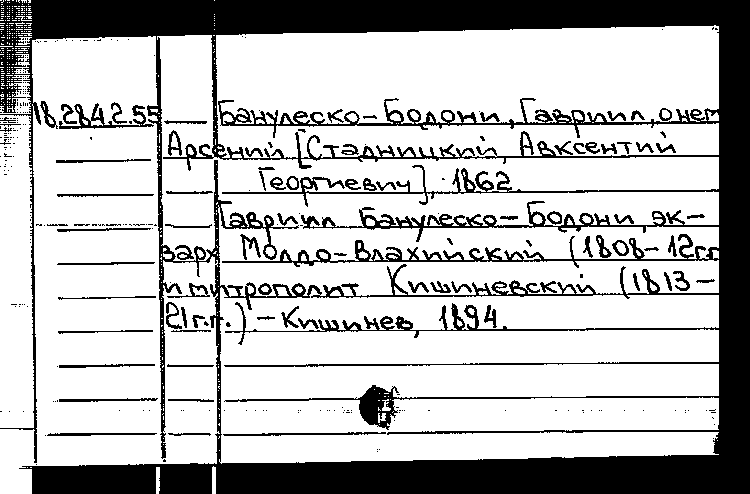 18.284.2.55 — Банулеско-Бодони, Гавриил, о нем
Арсений [Стадницкий, Авксентий
Георгиевич], 1862.
Гавриил Банулеско-Бодони, эк-
зарх Молдо-Влахийский (1808-12гг
и митрополит Кишиневский (1813-
21г.г.).-Кишинев, 1894.